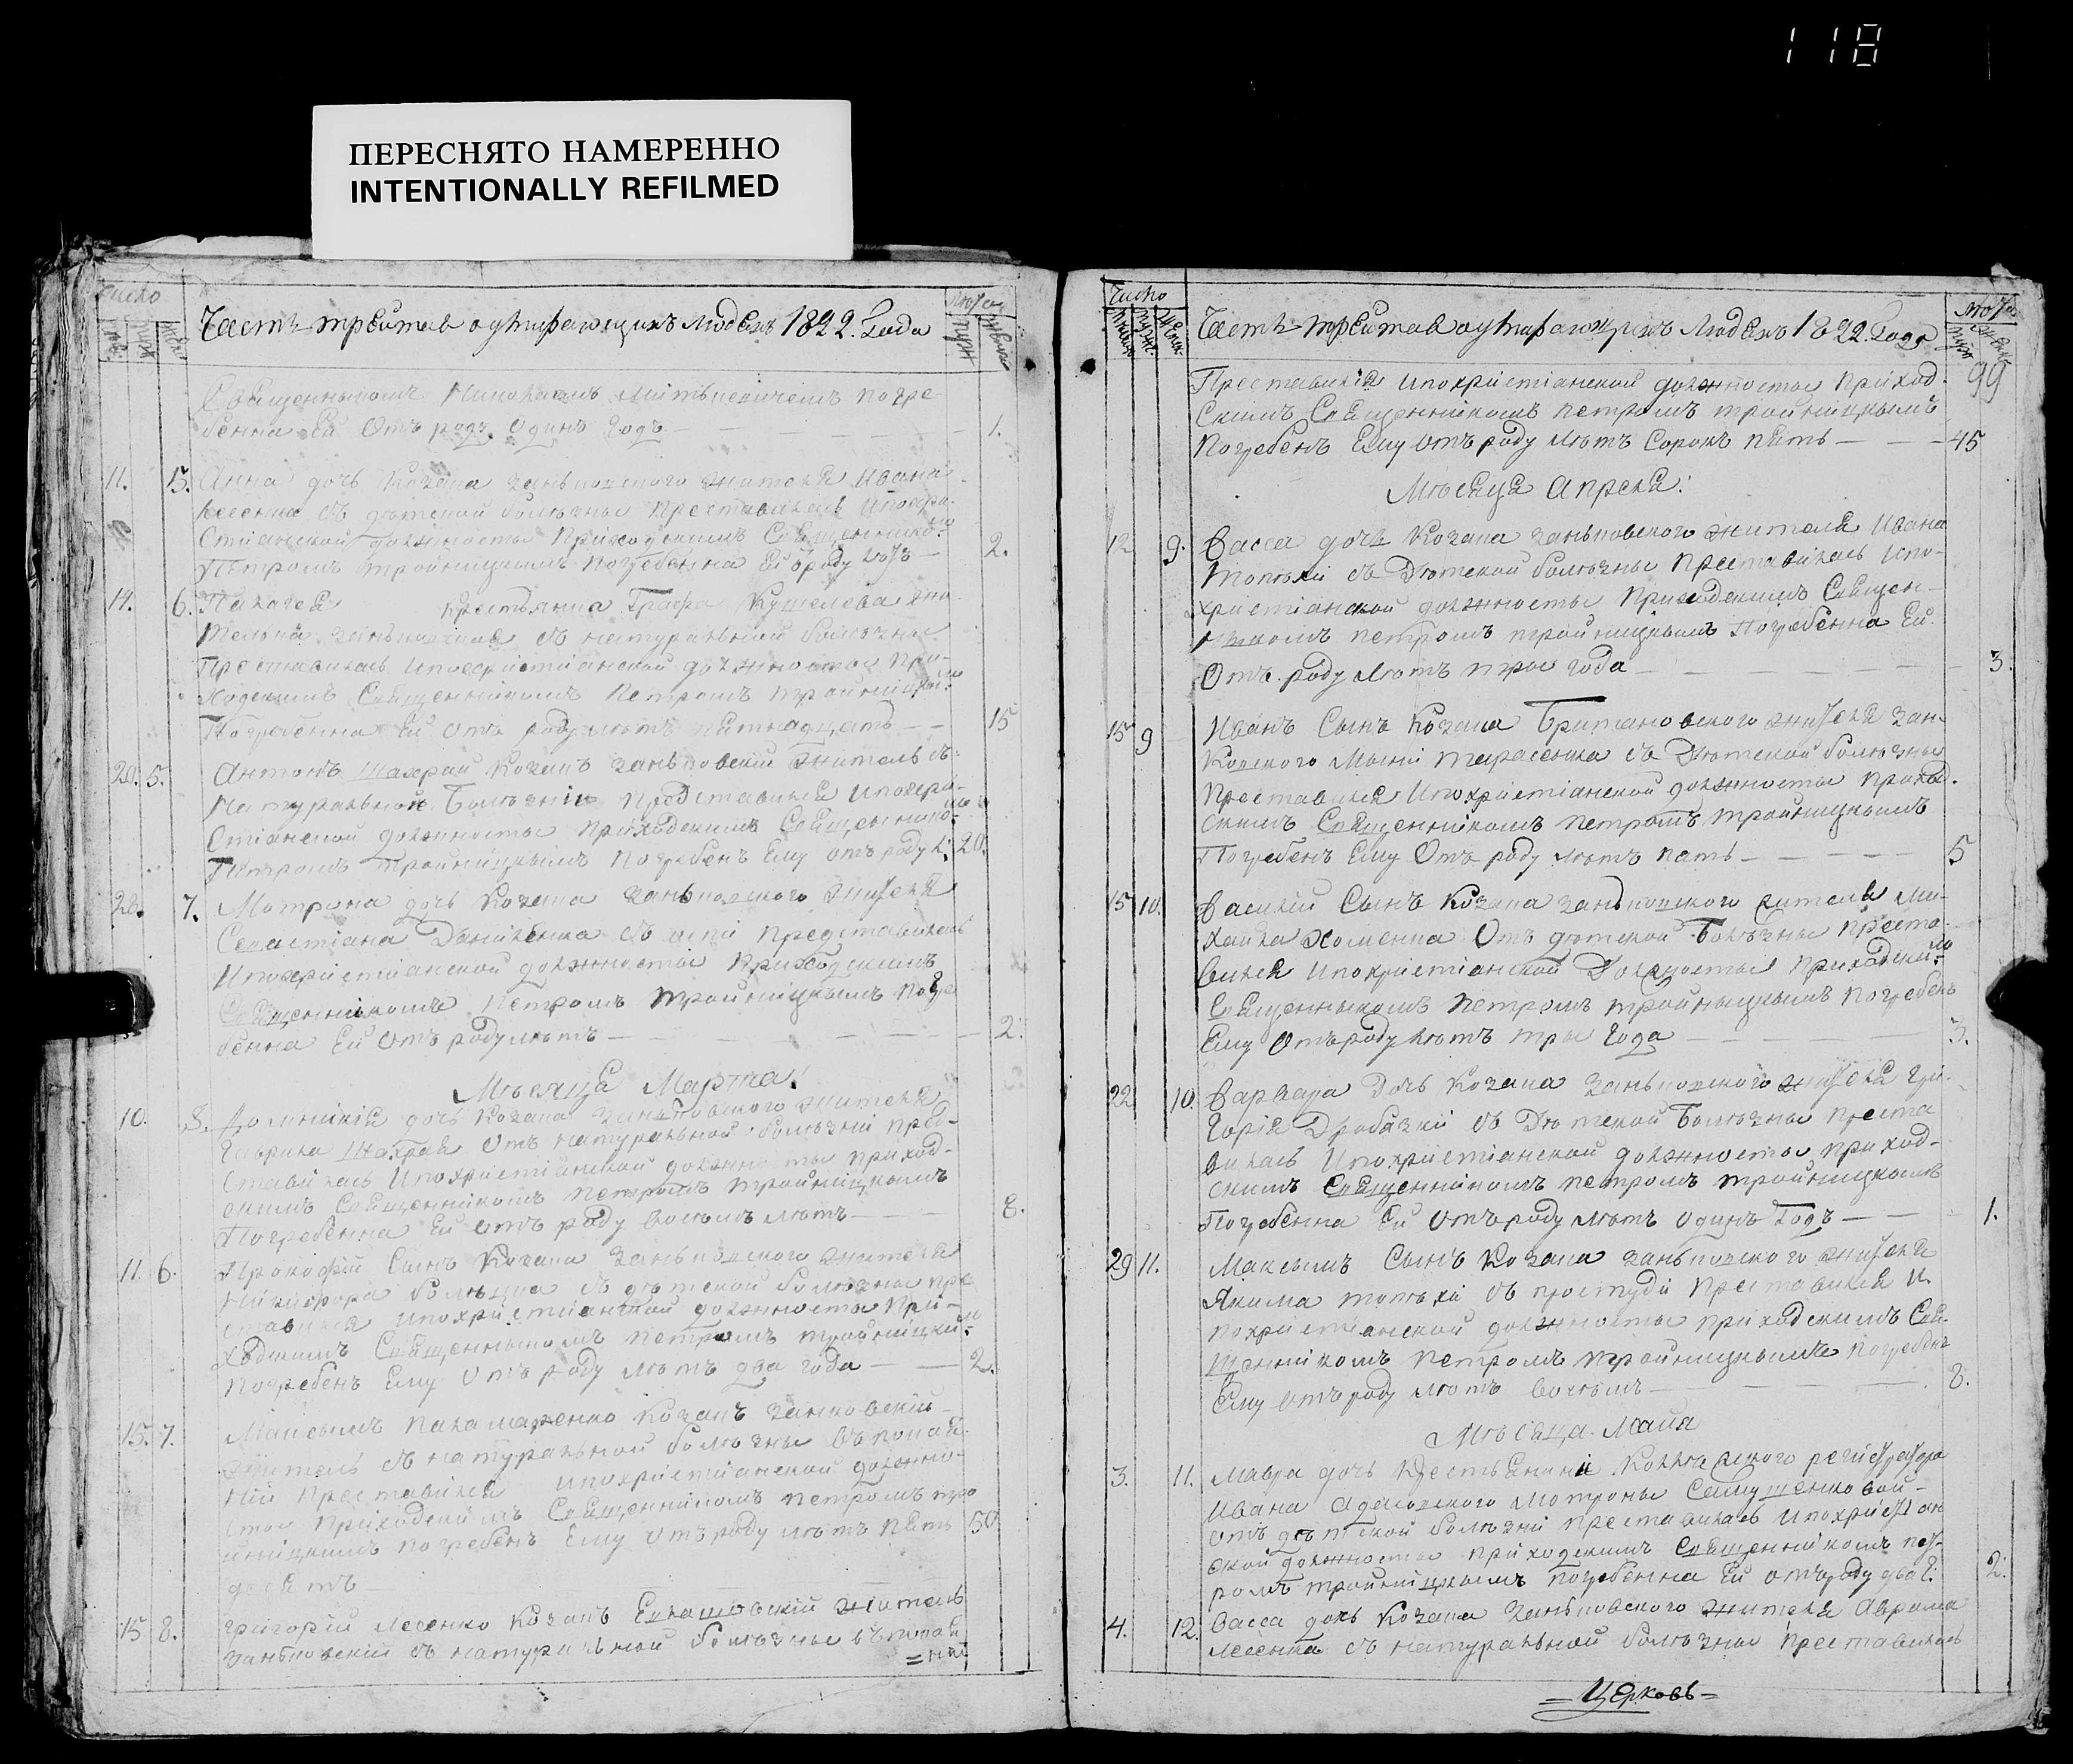 118
ПЕРЕСНЯТО НАМЕРЕННО
INTENTIONALLY REFILMED
Число
Лѣта
Часть третѣя о умирающихъ людехъ 1822. Года
Священникомъ Николаемъ погре-
бенна Ей Отъ роду Одинъ Годъ 1.
11. 5. Анна дочь Козака заньковского жителя Ивана
Лесенка съ дѣтской болѣзны преставилась ипохри-
стианской должносты приходскимъ Священнико:мъ
Петромъ тройницкымъ погребенна Ей ѿроду лѣтъ 2.
14. 6. Пелагея Крестьянка Графа Кушелева жи-
телька съ натуральной болѣзны
Преставилась ипохристианской должносты при-
ходскимъ Священникомъ Петромъ тройницкы:мъ
Погребенна Ей отъ роду лѣтъ пятнадцать 15
20. 5. Антонъ Шахрай Козакъ заньковскій житель съ
натуральной Болѣзни представился ипохри-
стіанской должносты приходскимъ Священнико:мъ
Петромъ тройницкымъ погребенъ Ему отъ роду л: 20.
28. 7. Мотрона дочь Козака заньковского жителя
Севастіана Даниленка съ преставилась
ипохристіанской должносты приходскимъ
Священникомъ Петромъ тройницкымъ погре
бенна Ей отъ роду лѣтъ 2.
Мѣсяца Марта:
10. 8. Домникія дочь Козака заньковского жителя
Гаврила Шахрая отъ натуральной болѣзни пред-
ставилась ипохристіанской должносты приход-
скимъ Священникомъ Петромъ тройницкымъ
Погребенна Ей отъ роду восѣмъ лѣтъ 8.
11. 6. Прокофій Сынъ Козака заньковского жителя
Никифора съ дѣтской болѣзны пре
ставился ипохристіанской должносты при-
ходскимъ Священныкомъ Петромъ тройницки:мъ
погребенъ Ему отъ роду лѣтъ два года 2.
15. 7. Максымъ Паламаренко Козакъ занковскій
житель съ натуральной болѣзны въ покая-
ній преставился ипохристіанской должно-
сты приходскимъ Священникомъ Петромъ тро
йницкимъ погребенъ Ему отъ роду лѣтъ пять 50
десятъ
15 8. Григорій Лесенко Козакъ житель
заньковскій съ натуральной болѣзны въ покая
=ніи
Число
Лѣта
Часть третѣя о умирающихъ людехъ 1822. Года
99
Преставился ипохристіанской должносты приход-
скимъ Священникомъ петромъ тройницкымъ
погребенъ Ему отъ роду лѣтъ Сорокъ пять 45
Мѣсяца Апреля:
12 9. Васса дочь Козака заньковского жителя Ивана
съ Дѣтской болѣзны преставилась ипо-
христіанской должносты приходскимъ Священ-
никомъ петромъ тройницкымъ Погребенна Ей
Отъ роду лѣтъ тры года 3.
15 9 Иванъ Сынъ Козака Британовского жителя зан-
ковского Тарасенка съ Дѣтской болѣзны
преставился ипохристіанской должносты приход-
скимъ Священникомъ петромъ тройницкымъ
Погребенъ Ему Отъ роду лѣтъ пять 5
15 10. Василій Сынъ Козака заньковского жителя Ми-
хаила Хоменка Отъ дѣтской Болѣзны преста-
вился ипохристіанской Должносты приходски:мъ
Священныкомъ Петромъ тройныцкымъ погребенъ
Ему Отъ роду лѣтъ тры Года 3.
22 10. Варвара Дочь Козака заньковского жителя Гри-
горія Дробязки съ Дѣтской Болѣзны преста
вилась ипохристіанской должносты приход-
скимъ Священникомъ петромъ тройницкымъ
Погребенна Ей Отъ роду лѣтъ одинъ Годъ 1.
29 11. Максымъ Сынъ Козака заньковского жителя
Якима съ простуди преставился и-
похристіанской должносты приходскимъ Свя-
щенникомъ петромъ тройницкымъ погребенъ
Ему отъ роду лѣтъ восѣмъ 8.
Мѣсяца Маия
3. 11. Мавра дочь Крестьянки регистратора
Ивана Мотроны
отъ дѣтской болѣзни преставилась ипохристиан
ской должносты приходскимъ Священникомъ пет-
ромъ тройницкымъ погребенна Ей отъ роду два г: 2.
4. 12. Васса дочь Козака заньковского жителя Аврама
Лесенка съ натуральной болѣзны преставилась
=Церковь=